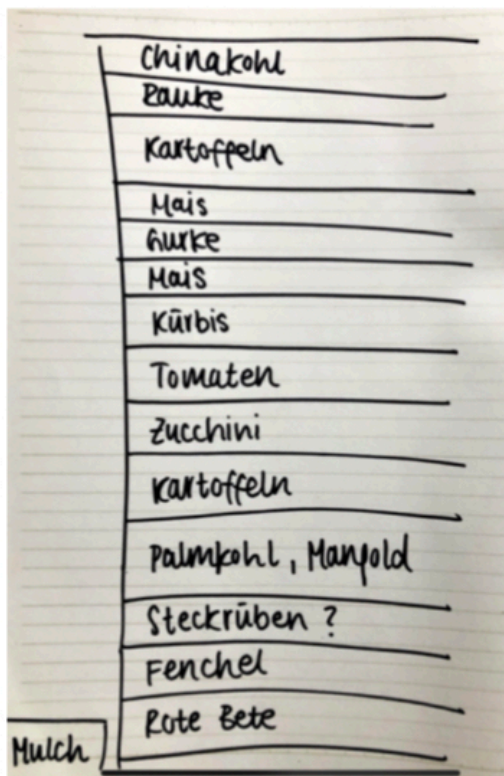 Chinakohl
Rauke
Kartoffeln
Mais
Gurke
Mais
Kürbis
Tomaten
Zucchini
Kartoffeln
Palmkohl, Mangold
Steckrüben ?
Fenchel
Rote Bete
Mulch